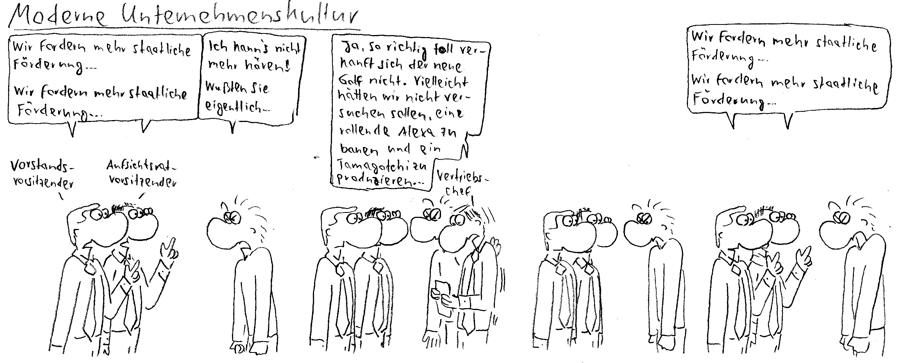 Moderne Unternehmenskultur
Wir fordern mehr staatliche
Förderung...
Wir fordern mehr staatliche
Förderung...
Ich kann's nicht
mehr hören!
Wußten Sie
eigentlich...
Ja, so richtig toll ver-
kauft sich der neue
Golf nicht. Vielleicht
hätten wir nicht ver-
suchen sollen, eine
rollende Alexa zu
bauen und ein
Tamagotchi zu
produzieren...
Wir fordern mehr staatliche
Förderung...
Wir fordern mehr staatliche
Förderung...
Vorstands-
vorsitzender
Aufsichtsrat-
vorsitzender
Vertriebs-
chef